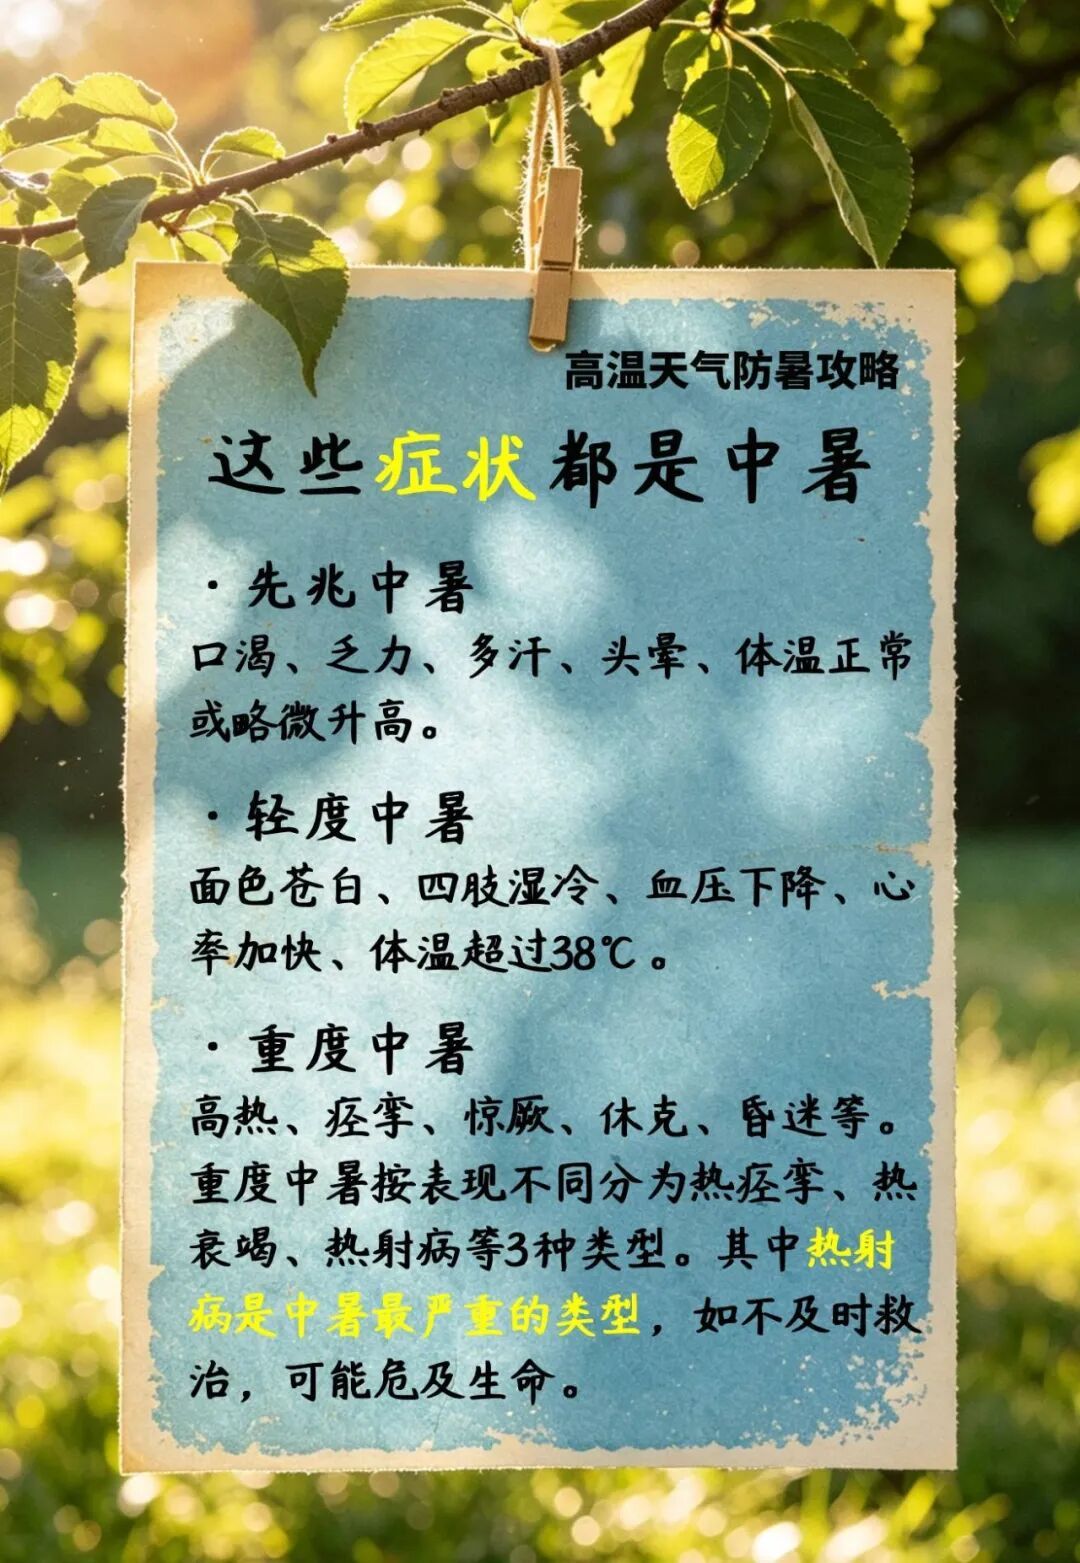 高温天气防暑攻略
这些症状都是中暑
·先兆中暑
口渴、乏力、多汗、头晕、体温正常
或略微升高。
·轻度中暑
面色苍白、四肢湿冷、血压下降、心
率加快、体温超过38℃。
·重度中暑
高热、痉挛、惊厥、休克、昏迷等。
重度中暑按表现不同分为热痉挛、热
衰竭、热射病等3种类型。其中热射
病是中暑最严重的类型，如不及时救
治，可能危及生命。